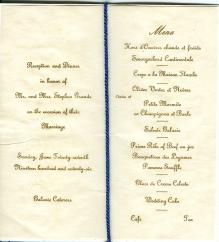 Reception and Dinner
in honor of
Mr. and Mrs. Stephen
on the occasion of their
Marriage
Sunday, June Twenty-seventh
Nineteen hundred and seventy-six
Caterers
Menu
Hors d'Oeuvres chauds et froids
Continentale
Coupe a la Maison
Olives Vertes et Noires
Petite Marmite
aux Champignons et
Salade
Prime Ribs of Beef au jus
Bouquetiere des Legumes
Pommes Souffle
Glace de Creme Celeste
Wedding Cake
Cafe Tea